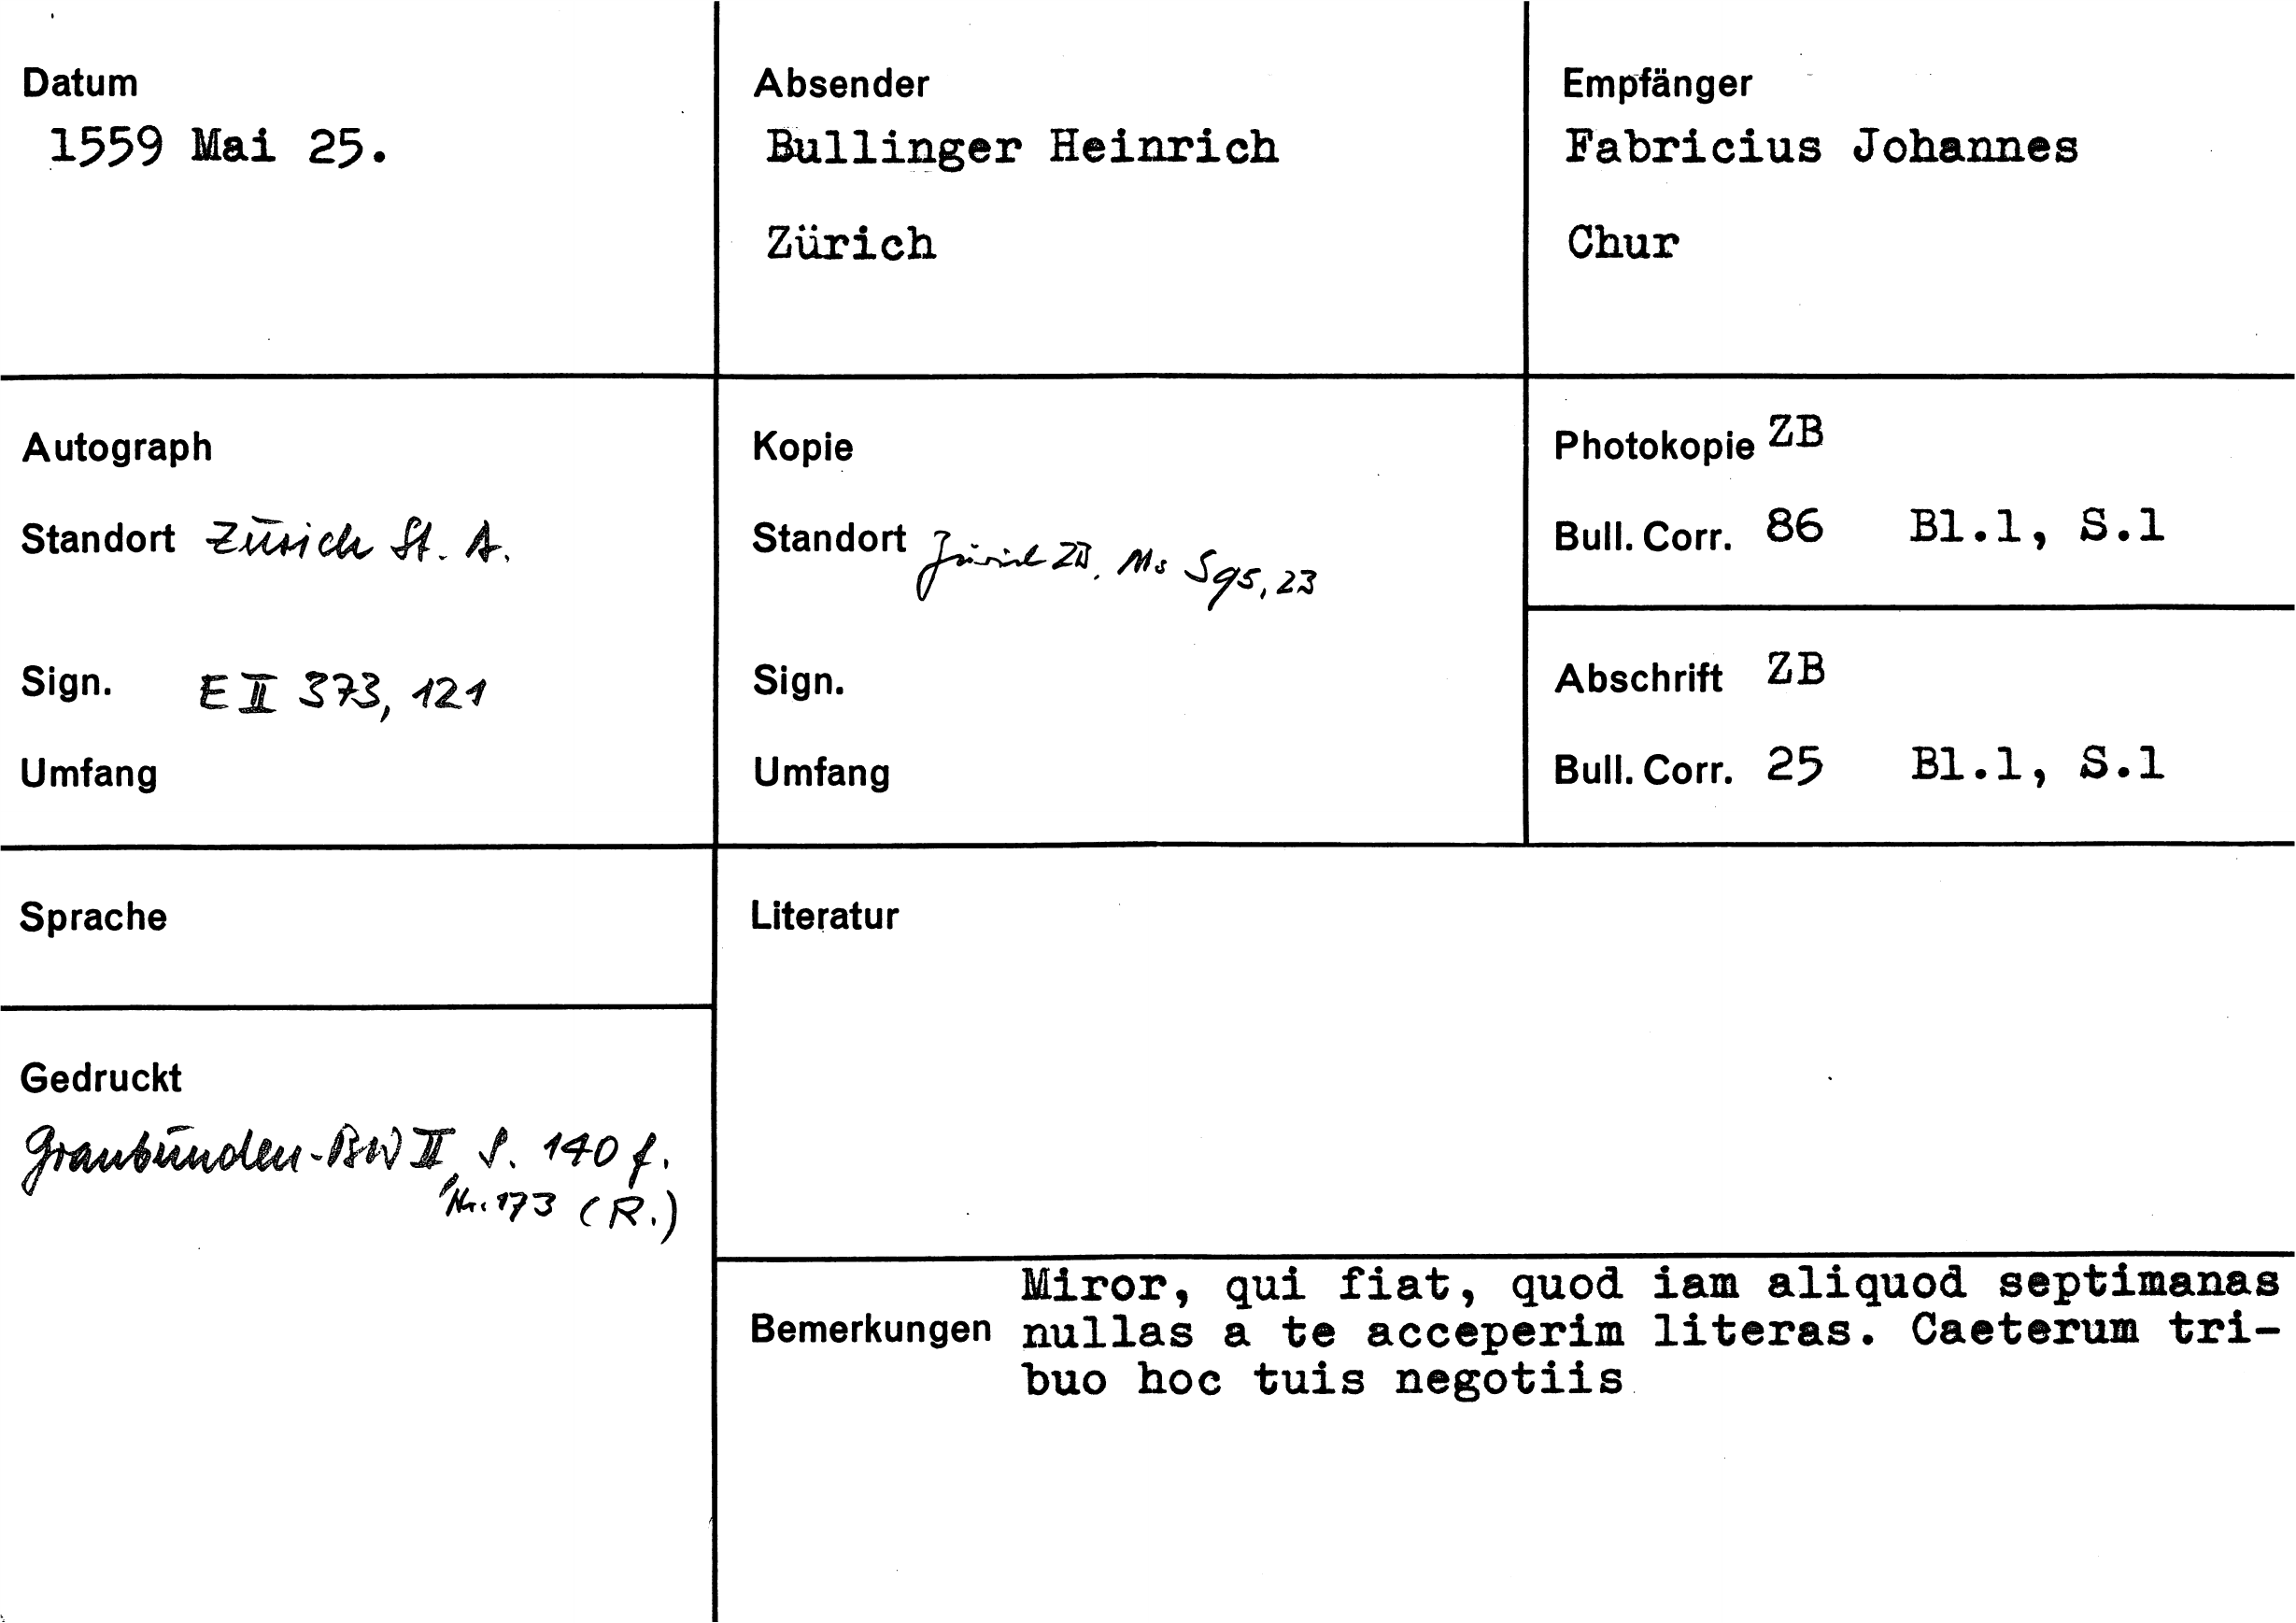 Datum
1559 Mai 25.
Absender
Bullinger Heinrich
Zürich
Empfänger
Fabricius Johannes
Chur
Autograph
Standort Zürich St. A.
Sign. E II 373, 121
Umfang
Kopie
Standort Zürich ZB. Ms S 95, 23
Sign.
Umfang
Photokopie ZB
Bull. Corr. 86 Bl.1, S.1
Abschrift ZB
Bull. Corr. 25 Bl.1, S.1
Sprache
Gedruckt
Graubünden-BW II, S. 140 f.
Nr. 173 (R.)
Literatur
Bemerkungen
Miror, qui fiat, quod iam aliquod septimanas
nullas a te acceperim literas. Caeterum tri-
buo hoc tuis negotiis